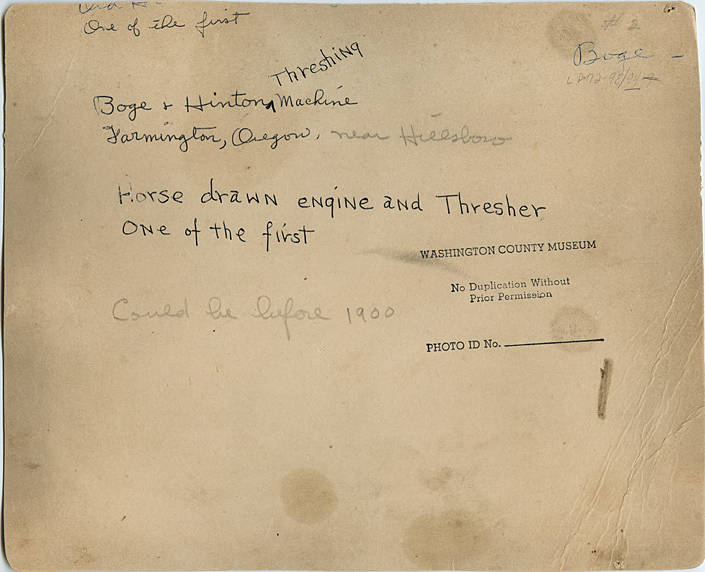 One of the first
# 2
Boge -
Boge & Hinton Threshing Machine
Farmington, Oregon, near Hillsboro
Horse drawn engine and Thresher
One of the first
WASHINGTON COUNTY MUSEUM
No Duplication Without
Prior Permission
Could be before 1900
PHOTO ID No.